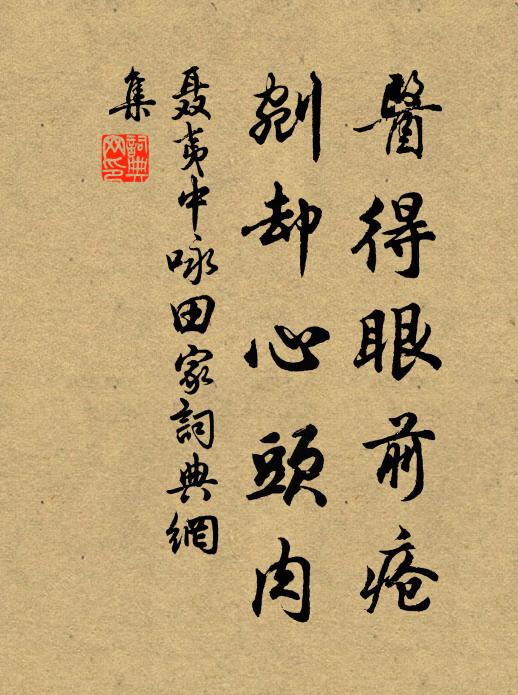 醫得眼前瘡
剜却心頭肉
聂夷中咏田家詞典網
集
詞典
网印